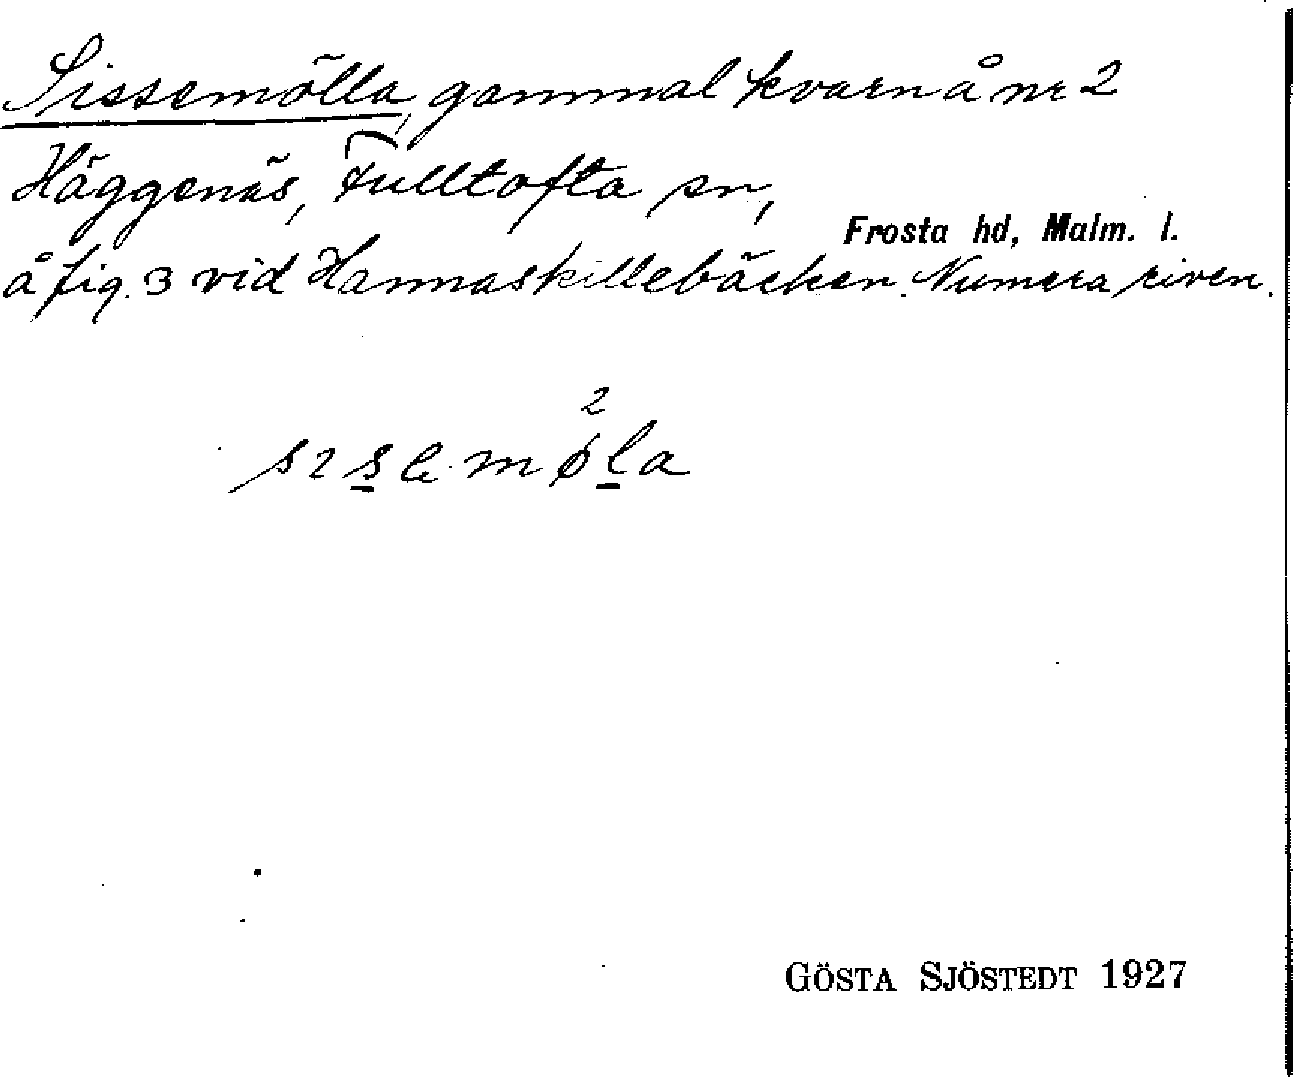 Sissemölla, gammal kvarn å nr 2
Häggenäs, Fulltofta sn,
Frosta hd, Malm. l.
å fig. 3 vid Hannaskillebäcken. Numera riven.
GÖSTA SJÖSTEDT 1927